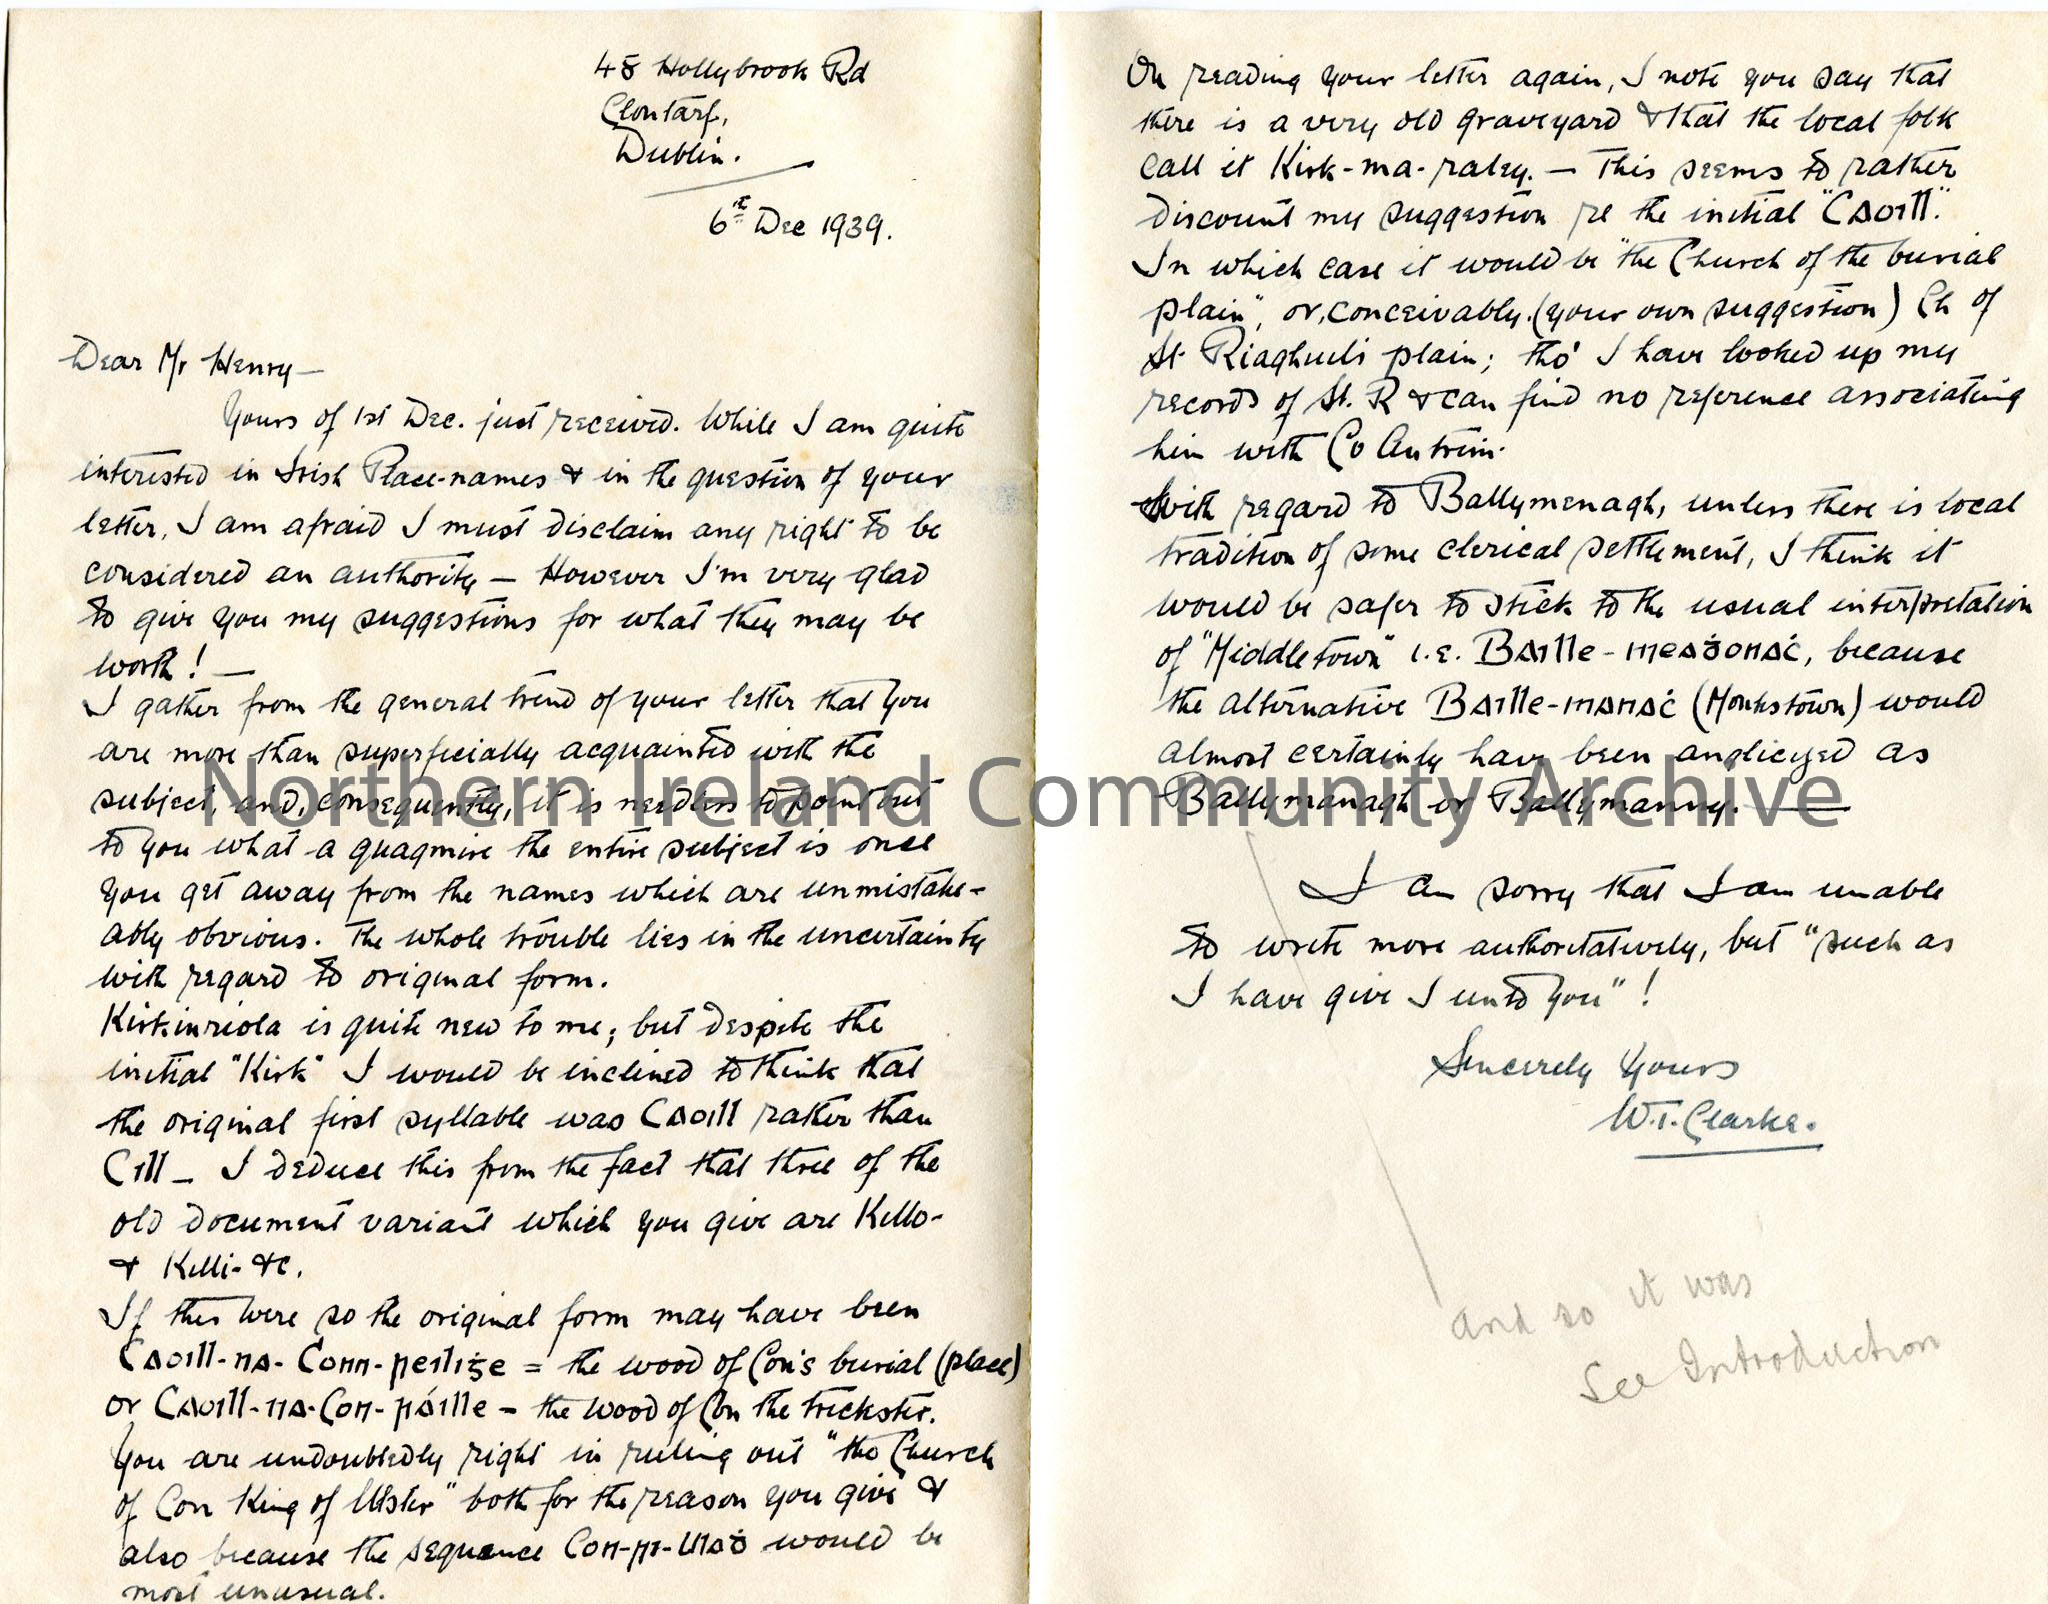 48 Hollybrook Rd
Clontarf,
Dublin.
6th Dec 1939.
Dear Mr Henry—
Yours of 1st Dec. just received. While I am quite
interested in Irish Place-names & in the question of your
letter, I am afraid I must disclaim any right to be
considered an authority — However I'm very glad
to give you my suggestions for what they may be
worth! —
I gather from the general trend of your letter that you
are more than superficially acquainted with the
subject, and, consequently, it is needless to point out
to you what a quagmire the entire subject is once
you get away from the names which are unmistake-
ably obvious. The whole trouble lies in the uncertainty
with regard to original form.
Kirkinriola is quite new to me; but despite the
initial "Kirk" I would be inclined to think that
the original first syllable was Caoill rather than
Cill — I deduce this from the fact that three of the
old document variant which you give are Kello-
& Killi- &c.
If this were so the original form may have been
Caoill-na-Conn-reiliġe = the wood of Con's burial (place)
or Caoill-na-Con-ráille – the wood of Con the trickster.
You are undoubtedly right in ruling out "the Church
of Con King of Ulster" both for the reason you give &
also because the sequence Con-ri-Ulaḋ would be
most unusual.
On reading your letter again, I note you say that
there is a very old graveyard & that the local folk
call it Kirk-ma-raley. — This seems to rather
discount my suggestion re the initial "Caoill."
In which case it would be "the Church of the burial
plain", or, conceivably, (your own suggestion) Ch of
St. Riaghuil's plain; tho' I have looked up my
records of St. R & can find no reference associating
him with Co Antrim.
With regard to Ballymenagh, unless there is local
tradition of some clerical settlement, I think it
would be safer to stick to the usual interpretation
of "Middletown" i.e. Baille-meaḋonaċ, because
the alternative Baille-manaċ (Monkstown) would
almost certainly have been anglicyed as
Ballymanagh or Ballymanny. —
I am sorry that I am unable
to write more authoritatively, but "such as
I have give I unto you"!
Sincerely Yours
W.T. Clarke.
and so it was
See Introduction
Northern Ireland Community Archive